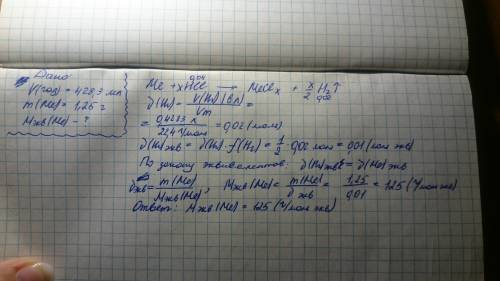 Дано
V(газ) = 428,3 мл
m(Me) = 1,25 г
Mэкв(Me) - ?
Me + xHCl → MeClx + x/2 H2↑
0,04
0,02
ν(H2) = V(H2) / Vm =
= 0,4283 л / 22,4 л/моль = 0,02 (моль)
ν(H2)экв = ν(H2) · f(H2) = 1/2 · 0,02 моль = 0,01 (моль экв)
По закону эквивалентов: ν(H2)экв = ν(Me)экв
νэкв = m(Me) / Mэкв(Me); Mэкв(Me) = m(Me) / νэкв = 1,25 / 0,01 = 125 (г/моль экв)
Ответ: Mэкв(Me) = 125 (г/моль экв)